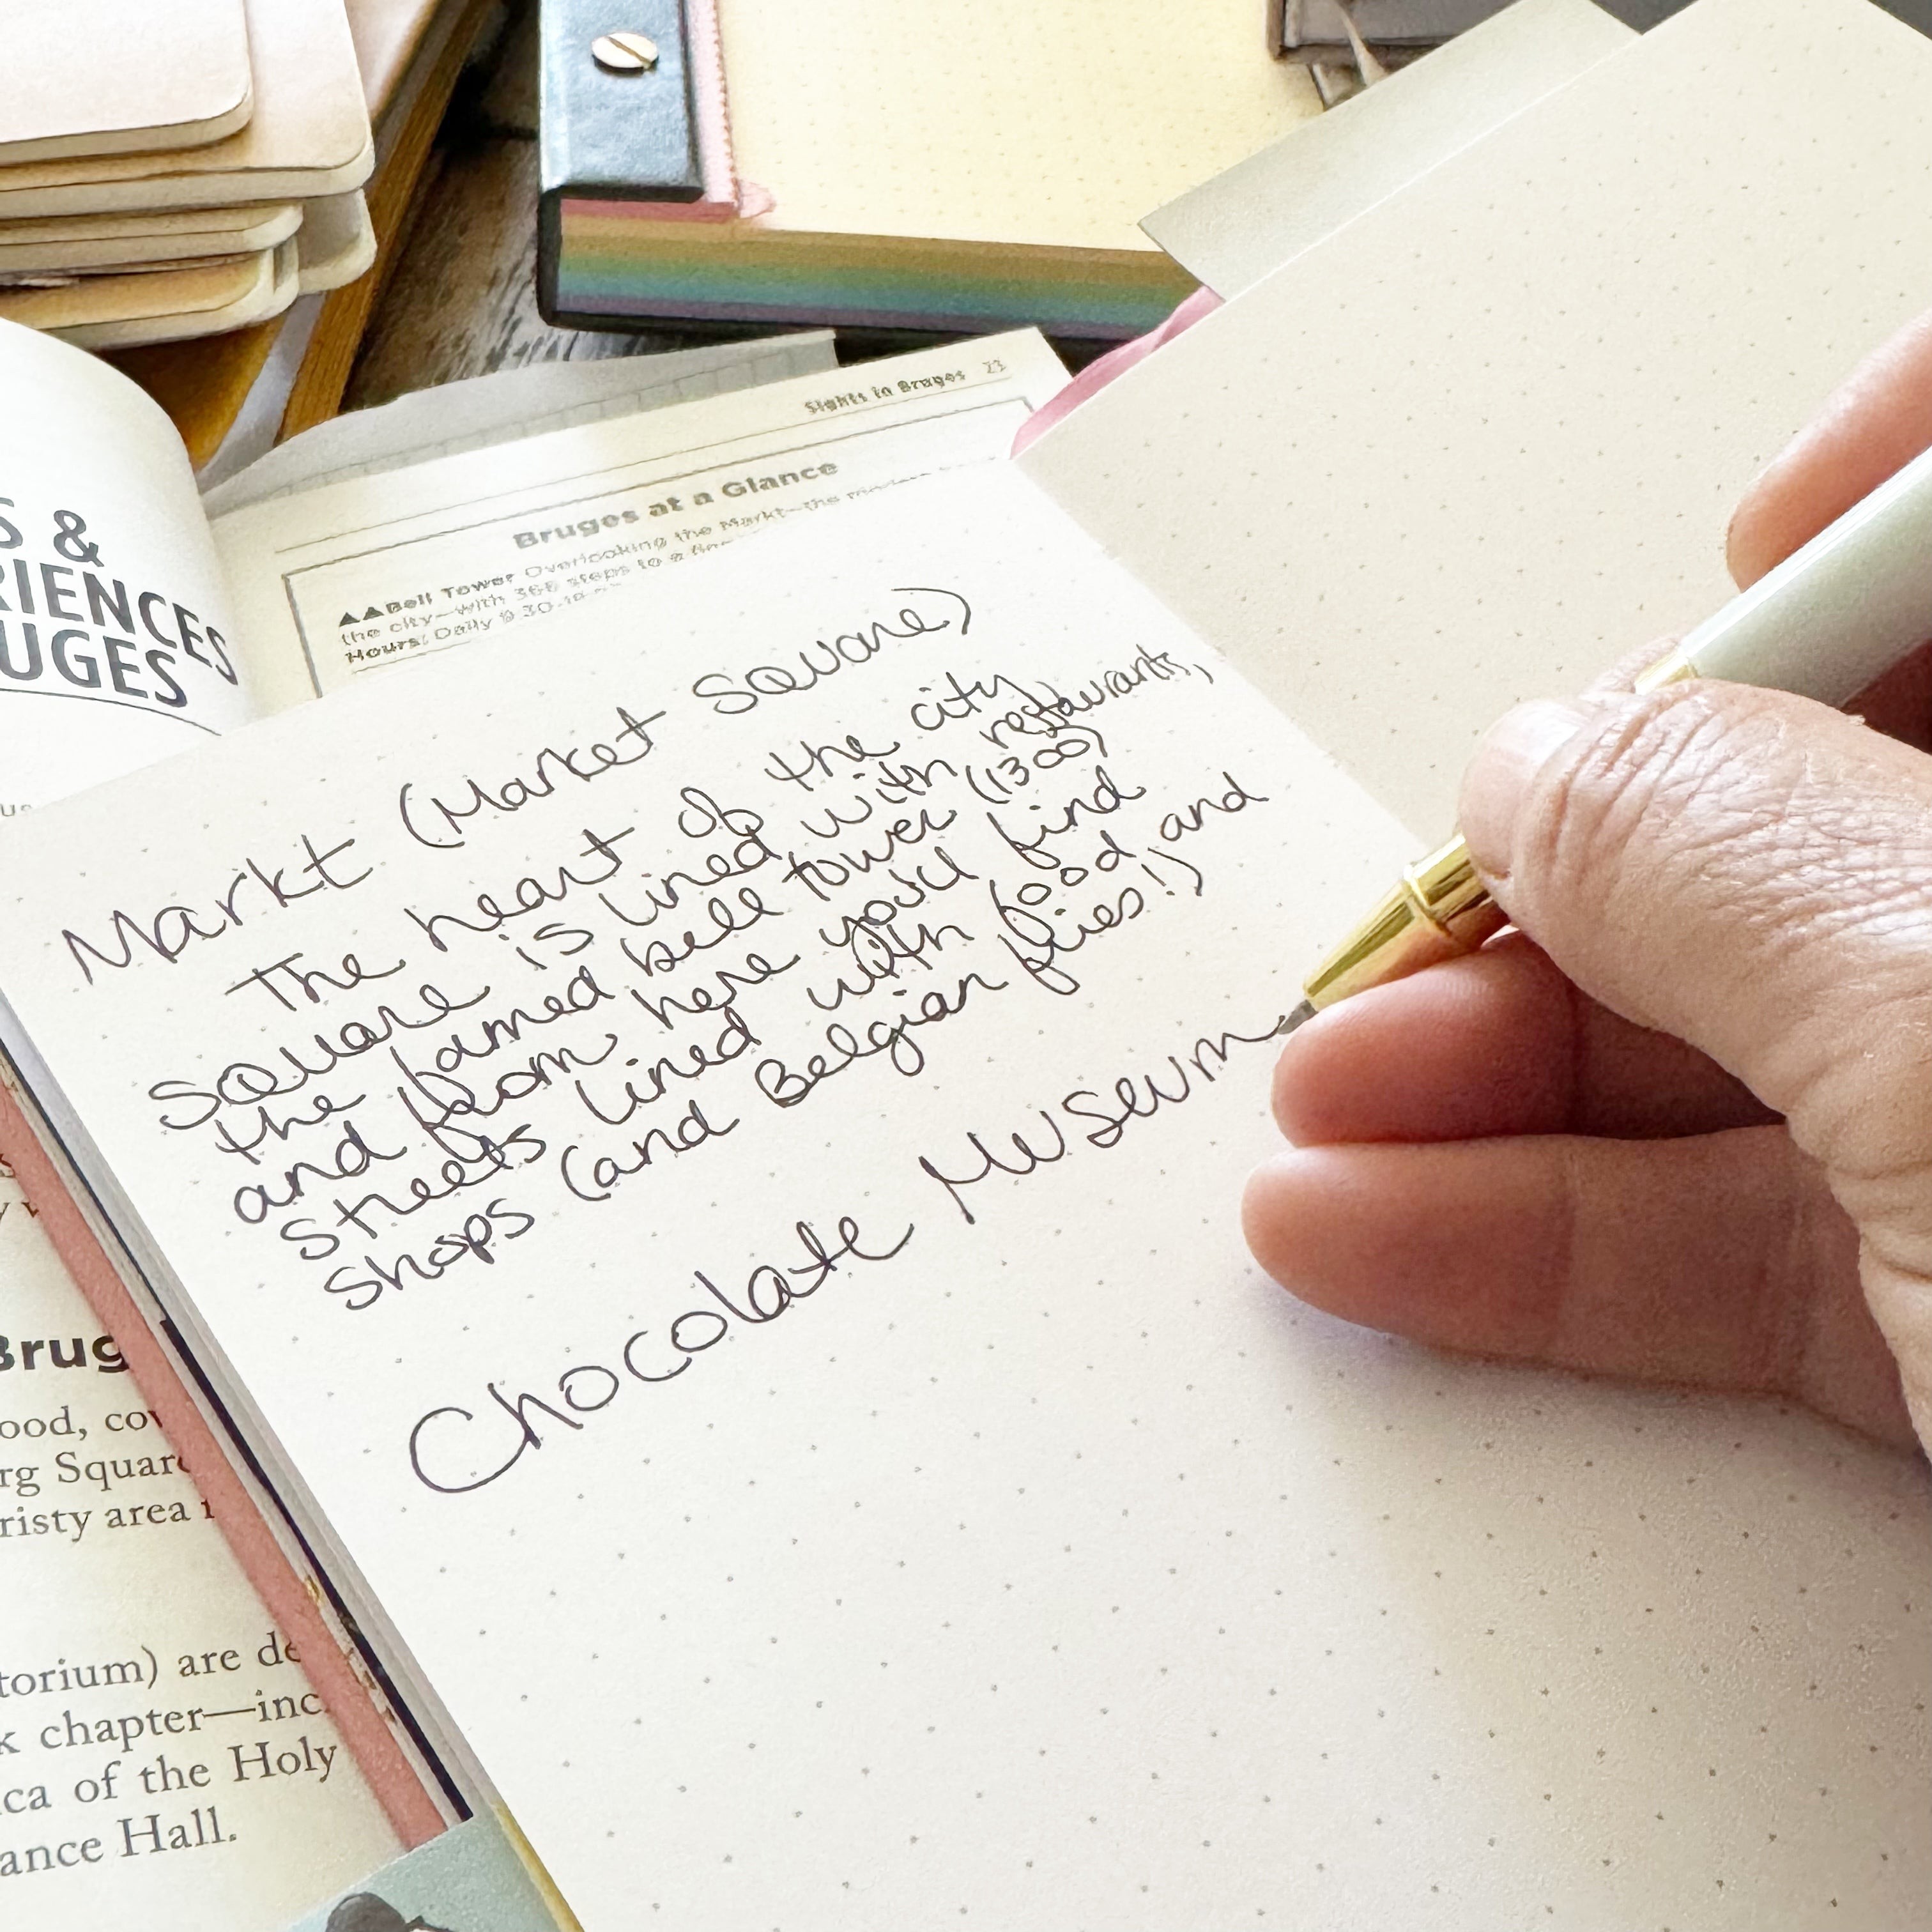 Sights in Bruges 23
Bruges at a Glance
▲▲Bell Tower Overlooking the Markt—the
the city—with 366 steps to a
Hours: Daily 9:30-18
S &
RIENCES
UGES
Markt (Market Square)
The heart of the city
square is lined with restaurants,
the famed bell tower (1300)
and from here you'll find
streets lined with food and
shops (and Belgian fries!)
Chocolate Museum
Brug
ood, cov
rg Squar
risty area
torium) are de
k chapter—inc
ca of the Holy
ance Hall.